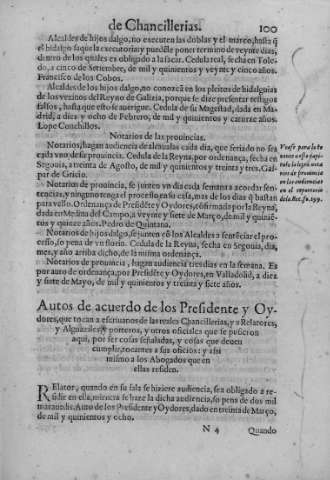 de Chancillerias. 100
Alcaldes de hijos dalgo, no executen las doblas y el marco, hasta q̃
el hidalgo saque la executoria y puedẽle poner termino de veynte dias,
dentro de los quales es obligado a la sacar. Cedula real, fecha en Tole-
do, a cinco de Setiembre, de mil y quinientos y veynte y cinco años.
Francisco de los Cobos.
Alcaldes de los hijos dalgo, no conozcã en los pleitos de hidalguias
de los vezinos del Reyno de Galizia, porque se dize presentar testigos
falsos, hasta que esto se auerigue. Cedula de su Magestad, dada en Ma-
drid, a diez y ocho de Febrero, de mil y quinientos y catorze años.
Lope Conchillos.
Notarios de las prouincias.
Notarios, hagan audiencia de alcaualas cada dia, que feriado no sea
cada vno de su prouincia. Cedula de la Reyna, por ordenança, fecha en
Segouia, a treinta de Agosto, de mil y quinientos y treinta y tres. Gas-
par de Gricio.
Notarios de prouincia, se junten vn dia cada semana a acordar sen-
tencias, y ninguno tenga el processo en su casa, mas de los dias q̃ bastan
para vello. Ordenança de Presidẽte y Oydores, cõfirmada por la Reyna,
dada en Medina del Campo, a veynte y siete de Março, de mil y quiniẽ-
tos y quinze años. Pedro de Quintana.
Notarios de hijos dalgo, se junten cõ los Alcaldes a sentẽciar el pro-
cesso, so pena de vn florin. Cedula de la Reyna, fecha en Segouia, dia,
mes, y año arriba dicho, de la misma ordenança.
Notarios de prouincia, hagan audiencia tres dias en la semana. Es
por auto de ordenança, por Presidẽte y Oydores, en Valladolid, a diez
y siete de Mayo, de mil y quinientos y treinta y siete años.
Vease para lo to
cante a este capi-
tulo la ley
de prouincia
en las ordenanças
en el repertorio
de la Rec. fo. 199.
Autos de acuerdo de los Presidente y Oy-
dores, que tocan a escriuanos de las reales Chancillerias, y a Relatores,
y Alguaziles, y porteros, y otros oficiales que se pusieron
aqui, por ser cosas señaladas, y cosas que deuen
cumplir, tocantes a sus oficios: y assi
mismo a los Abogados que en
ellas residen.
RElator, quando en su sala se hiziere audiencia, sea obligado a re-
sidir en ella, miẽtras se haze la dicha audiencia, so pena de dos mil
marauedis. Auto de los Presidente y Oydores, dado en treinta de Março,
de mil y quinientos y ocho.
N 4 Quando